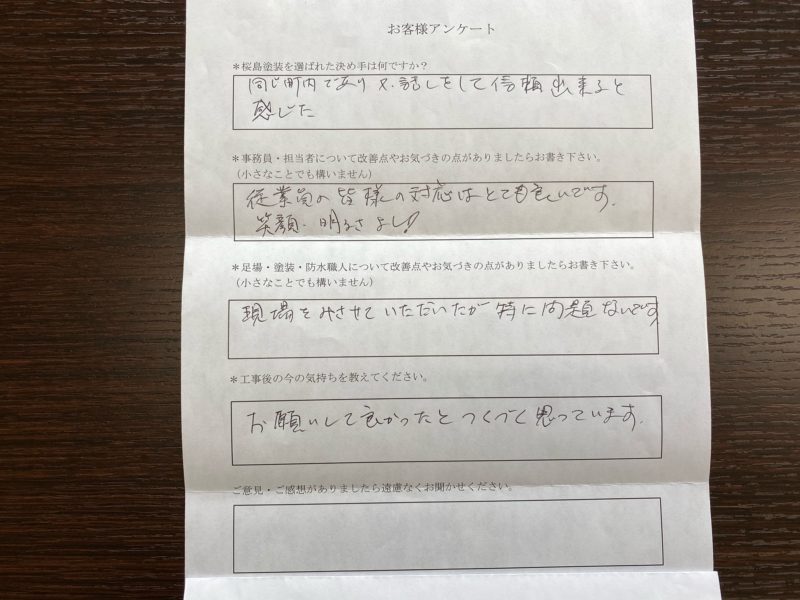 お客様アンケート
＊桜島塗装を選ばれた決め手は何ですか？
同じ町内であり又、話しをして信頼出来ると
感じた
＊事務員・担当者について改善点やお気づきの点がありましたらお書き下さい。
（小さなことでも構いません）
従業員の皆様の対応はとても良いです。
笑顔・明るさよし！
＊足場・塗装・防水職人について改善点やお気づきの点がありましたらお書き下さい。
（小さなことでも構いません）
現場をみさせていただいたが特に問題ないです
＊工事後の今の気持ちを教えてください。
お願いして良かったとつくづく思っています。
ご意見・ご感想がありましたら遠慮なくお聞かせください。